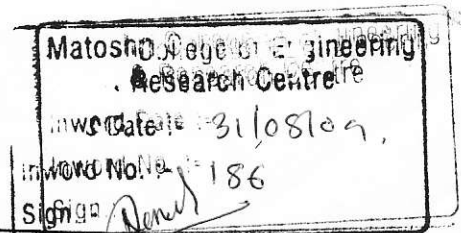 Matoshri College of Engineering
& Research Centre
Inword Date :- 31/08/09,
Inword No. :- 186
Sign :-